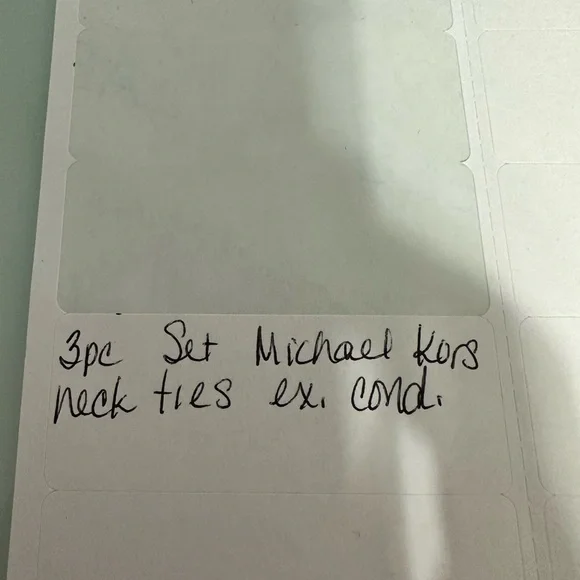 3pc Set Michael Kors
neck ties ex. cond.